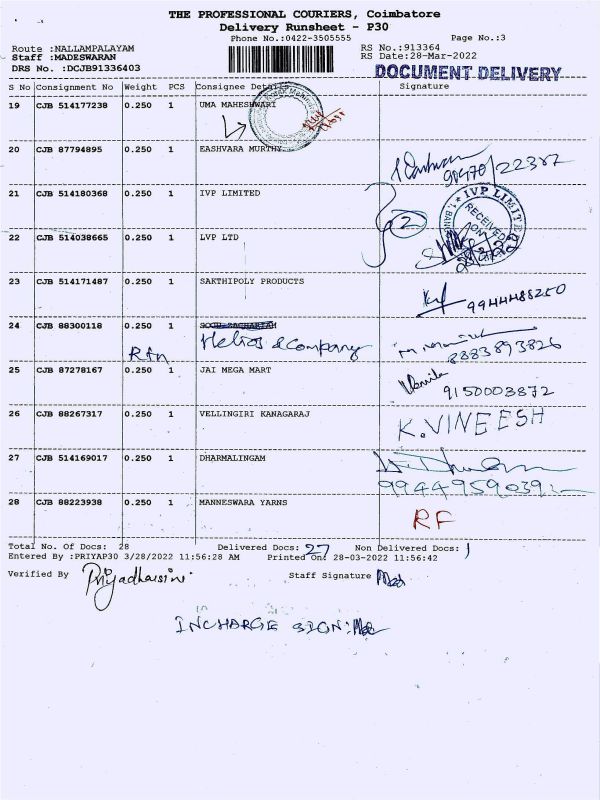 THE PROFESSIONAL COURIERS, Coimbatore
Delivery Runsheet - P30
Phone No.:0422-3505555 Page No.:3
Route :NALLAMPALAYAM RS No.:913364
Staff :MADESWARAN RS Date:28-Mar-2022
DRS No. :DCJB91336403 DOCUMENT DELIVERY
S No Consignment No Weight PCS Consignee Details Signature
19 CJB 514177238 0.250 1 UMA MAHESHWARI
20 CJB 87794895 0.250 1 EASHVARA MURTHY
90470/22387
21 CJB 514180368 0.250 1 IVP LIMITED
IVP LIMITED
RECEIVED
ON
2
22 CJB 514038665 0.250 1 LVP LTD
23 CJB 514171487 0.250 1 SAKTHIPOLY PRODUCTS
9944488250
24 CJB 88300118 0.250 1
Helios & Company
Rtn
8883893826
25 CJB 87278167 0.250 1 JAI MEGA MART
9150003872
26 CJB 88267317 0.250 1 VELLINGIRI KANAGARAJ
K.VINEESH
27 CJB 514169017 0.250 1 DHARMALINGAM
9944959039
28 CJB 88223938 0.250 1 MANNESWARA YARNS
RF
Total No. Of Docs: 28 Delivered Docs: 27 Non Delivered Docs: 1
Entered By :PRIYAP30 3/28/2022 11:56:28 AM Printed On: 28-03-2022 11:56:42
Verified By Priyadharsini Staff Signature
INCHARGE SIGN: